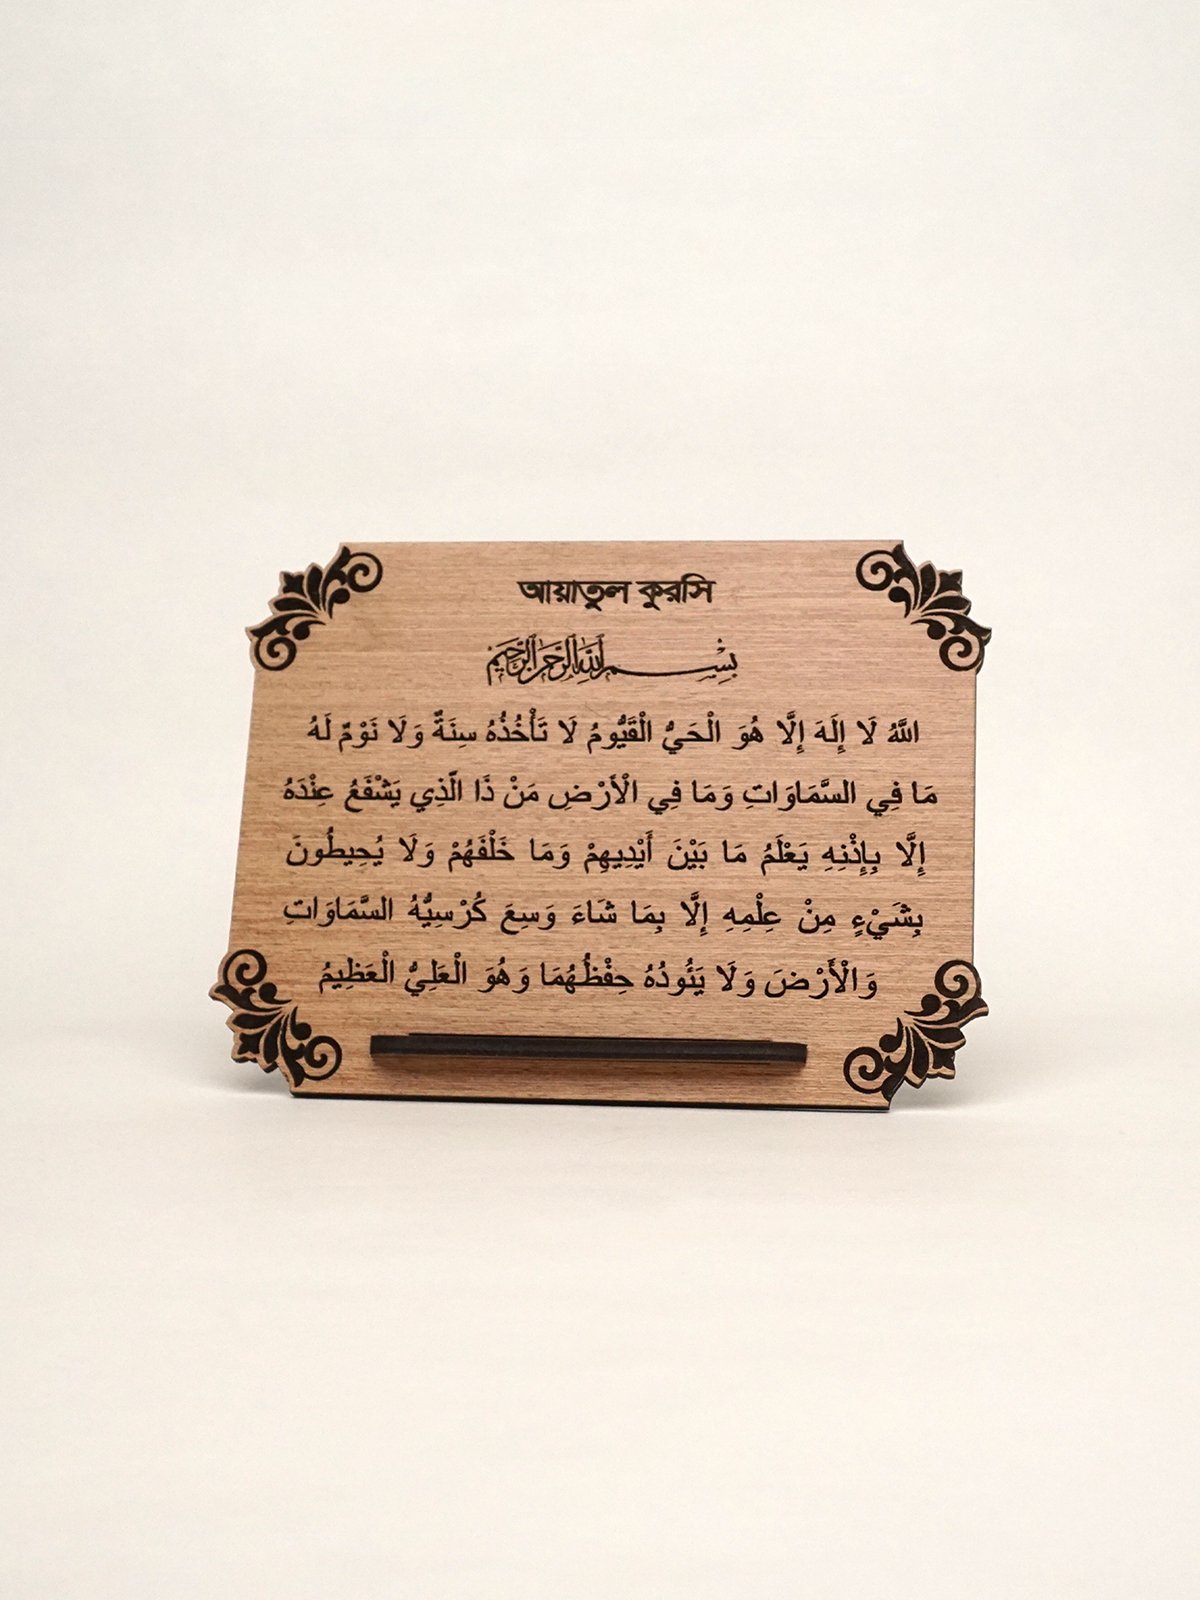 আয়াতুল কুরসি
بسم الله الرحمن الرحيم
اللَّهُ لَا إِلَهَ إِلَّا هُوَ الْحَيُّ الْقَيُّومُ لَا تَأْخُذُهُ سِنَةٌ وَلَا نَوْمٌ لَهُ
مَا فِي السَّمَاوَاتِ وَمَا فِي الْأَرْضِ مَنْ ذَا الَّذِي يَشْفَعُ عِنْدَهُ
إِلَّا بِإِذْنِهِ يَعْلَمُ مَا بَيْنَ أَيْدِيهِمْ وَمَا خَلْفَهُمْ وَلَا يُحِيطُونَ
بِشَيْءٍ مِنْ عِلْمِهِ إِلَّا بِمَا شَاءَ وَسِعَ كُرْسِيُّهُ السَّمَاوَاتِ
وَالْأَرْضَ وَلَا يَئُودُهُ حِفْظُهُمَا وَهُوَ الْعَلِيُّ الْعَظِيمُ